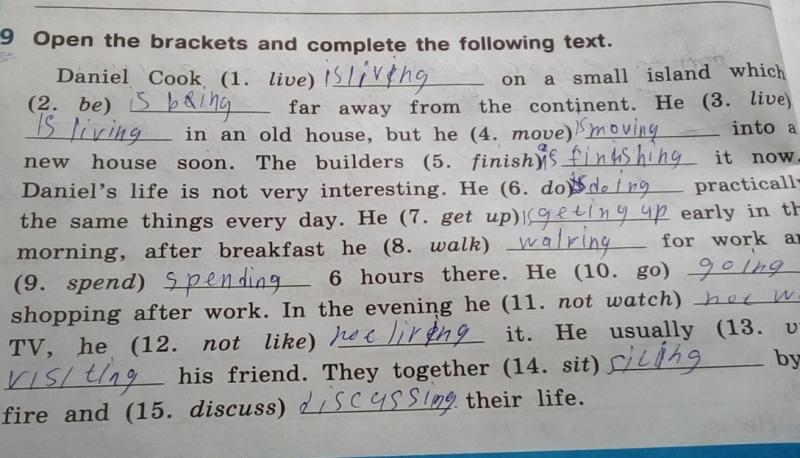 9 Open the brackets and complete the following text.
Daniel Cook (1. live) is living on a small island which
(2. be) is being far away from the continent. He (3. live)
is living in an old house, but he (4. move) is moving into a
new house soon. The builders (5. finish) is finishing it now.
Daniel's life is not very interesting. He (6. do) is doing practically
the same things every day. He (7. get up) is geting up early in th
morning, after breakfast he (8. walk) walking for work an
(9. spend) spending 6 hours there. He (10. go) going
shopping after work. In the evening he (11. not watch) not w
TV, he (12. not like) not liking it. He usually (13. v
visiting his friend. They together (14. sit) siting by
fire and (15. discuss) discussing their life.